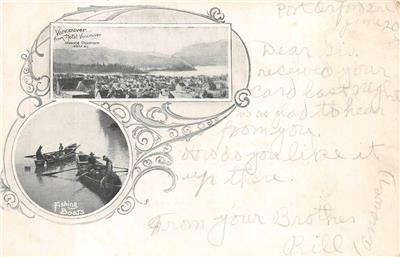 Vancouver
from Hotel Vancouver
Fishing
Boats
Port
June 20
Dear
received your
card last night
was glad to hear
from you.
How do you like it
up there.
From your Brother
Bill
(answer)